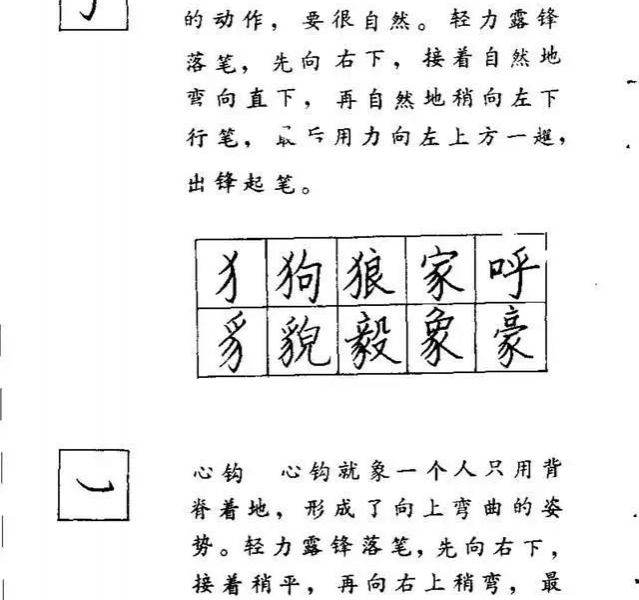 的动作，要很自然。轻力露锋
落笔，先向右下，接着自然地
弯向直下，再自然地稍向左下
行笔，最后用力向左上方一趯，
出锋起笔。
犭狗狼家呼
豸貌毅象豪
心钩 心钩就象一个人只用背
脊着地，形成了向上弯曲的姿
势。轻力露锋落笔，先向右下，
接着稍平，再向右上稍弯，最